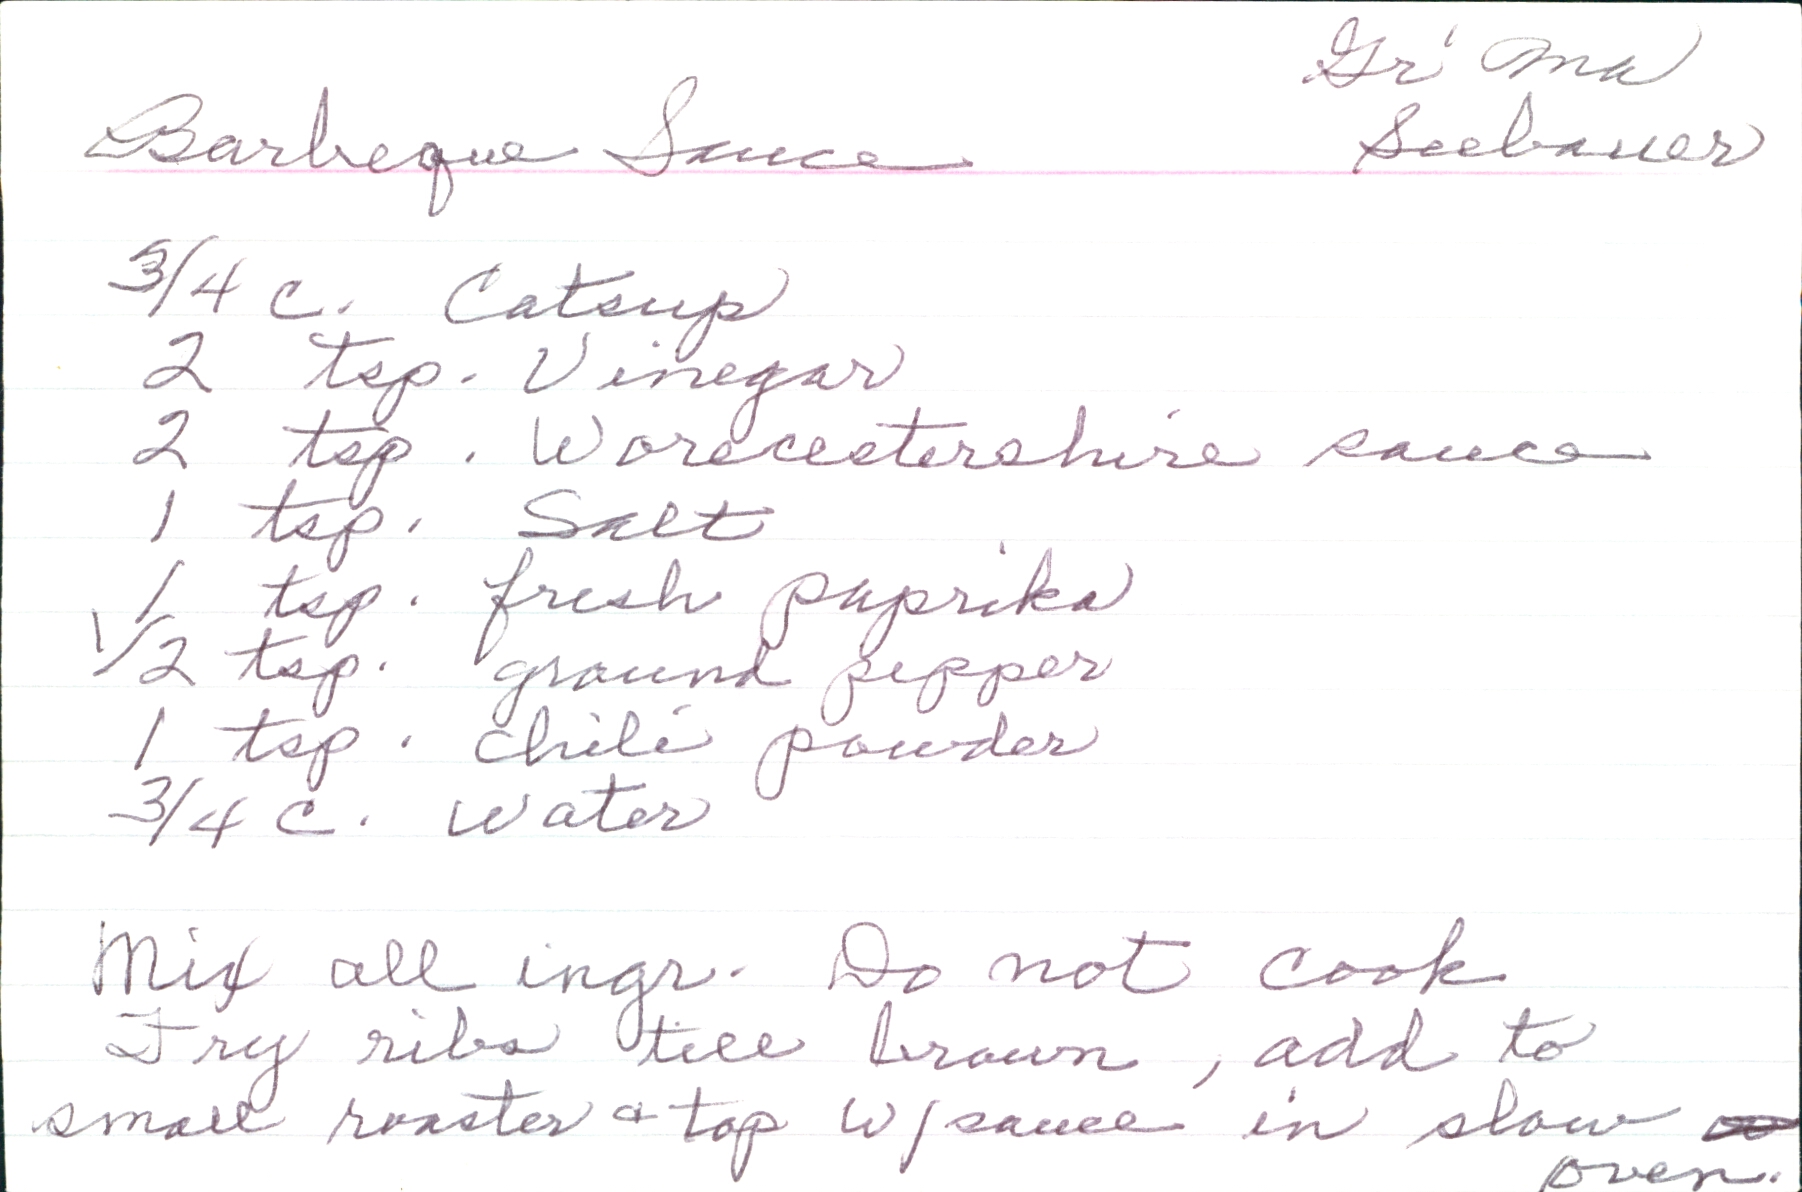 Gr' Ma
Barbeque Sauce Seebauer
3/4 c. Catsup
2 tsp. Vinegar
2 tsp. Worcestershire sauce
1 tsp. Salt
1 tsp. fresh paprika
1/2 tsp. ground pepper
1 tsp. chili powder
3/4 c. water
Mix all ingr. Do not cook
Fry ribs till brown, add to
small roaster & top w/sauce in slow
oven.